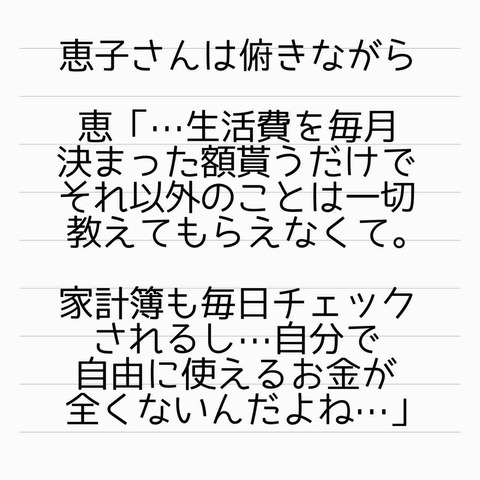 恵子さんは俯きながら
恵「…生活費を毎月
決まった額貰うだけで
それ以外のことは一切
教えてもらえなくて。
家計簿も毎日チェック
されるし…自分で
自由に使えるお金が
全くないんだよね…」